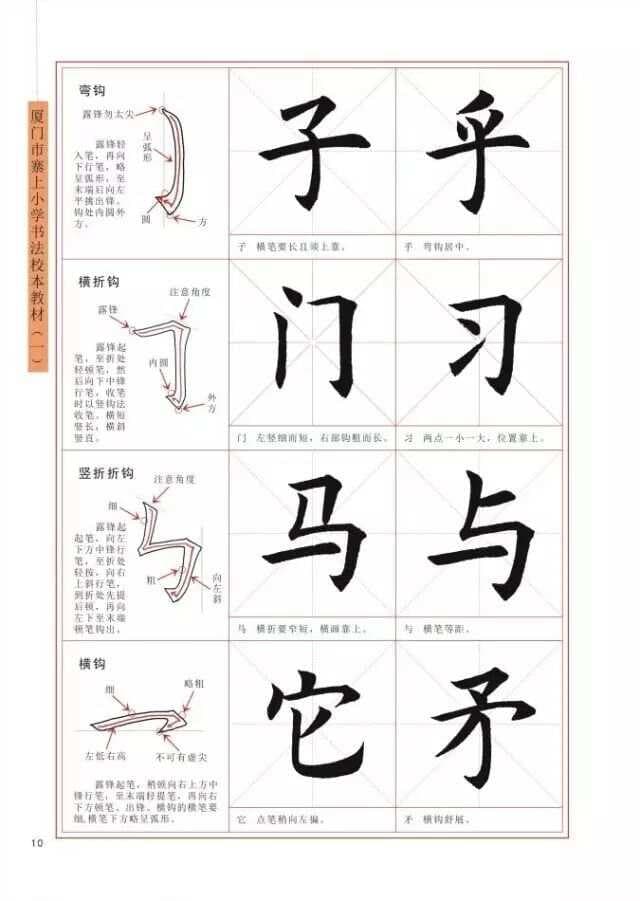 厦门市寨上小学书法校本教材（一）
弯钩
露锋勿太尖
呈弧形
露锋轻
入笔，再向
下行笔，略
呈弧形，至
末端后向左
平挑出锋。
钩处内圆外
方。
圆
方
子
乎
子 横笔要长且须上靠。
乎 弯钩居中。
横折钩
注意角度
露锋
露锋起
笔，至折处
轻顿笔，然
后向下中锋
行笔，收笔
时以竖钩法
收笔。横短
竖长，横斜
竖直。
内圆
外方
门
习
门 左竖细而短，右部钩粗而长。
习 两点一小一大，位置靠上。
竖折折钩
注意角度
细
露锋起
起笔，向左
下方中锋行
笔，至折处
轻按，向右
上斜行笔，
到折处先提
后顿，再向
左下至末端
顿笔钩出。
粗
向左斜
马
与
马 横折要窄短，横画靠上。
与 横笔等距。
横钩
细
略粗
左低右高
不可有虚尖
露锋起笔，稍倾向右上方中
锋行笔，至末端轻提笔，再向右
下方顿笔、出锋。横钩的横笔要
细,横笔下方略呈弧形。
它
矛
它 点笔稍向左偏。
矛 横钩舒展。
10